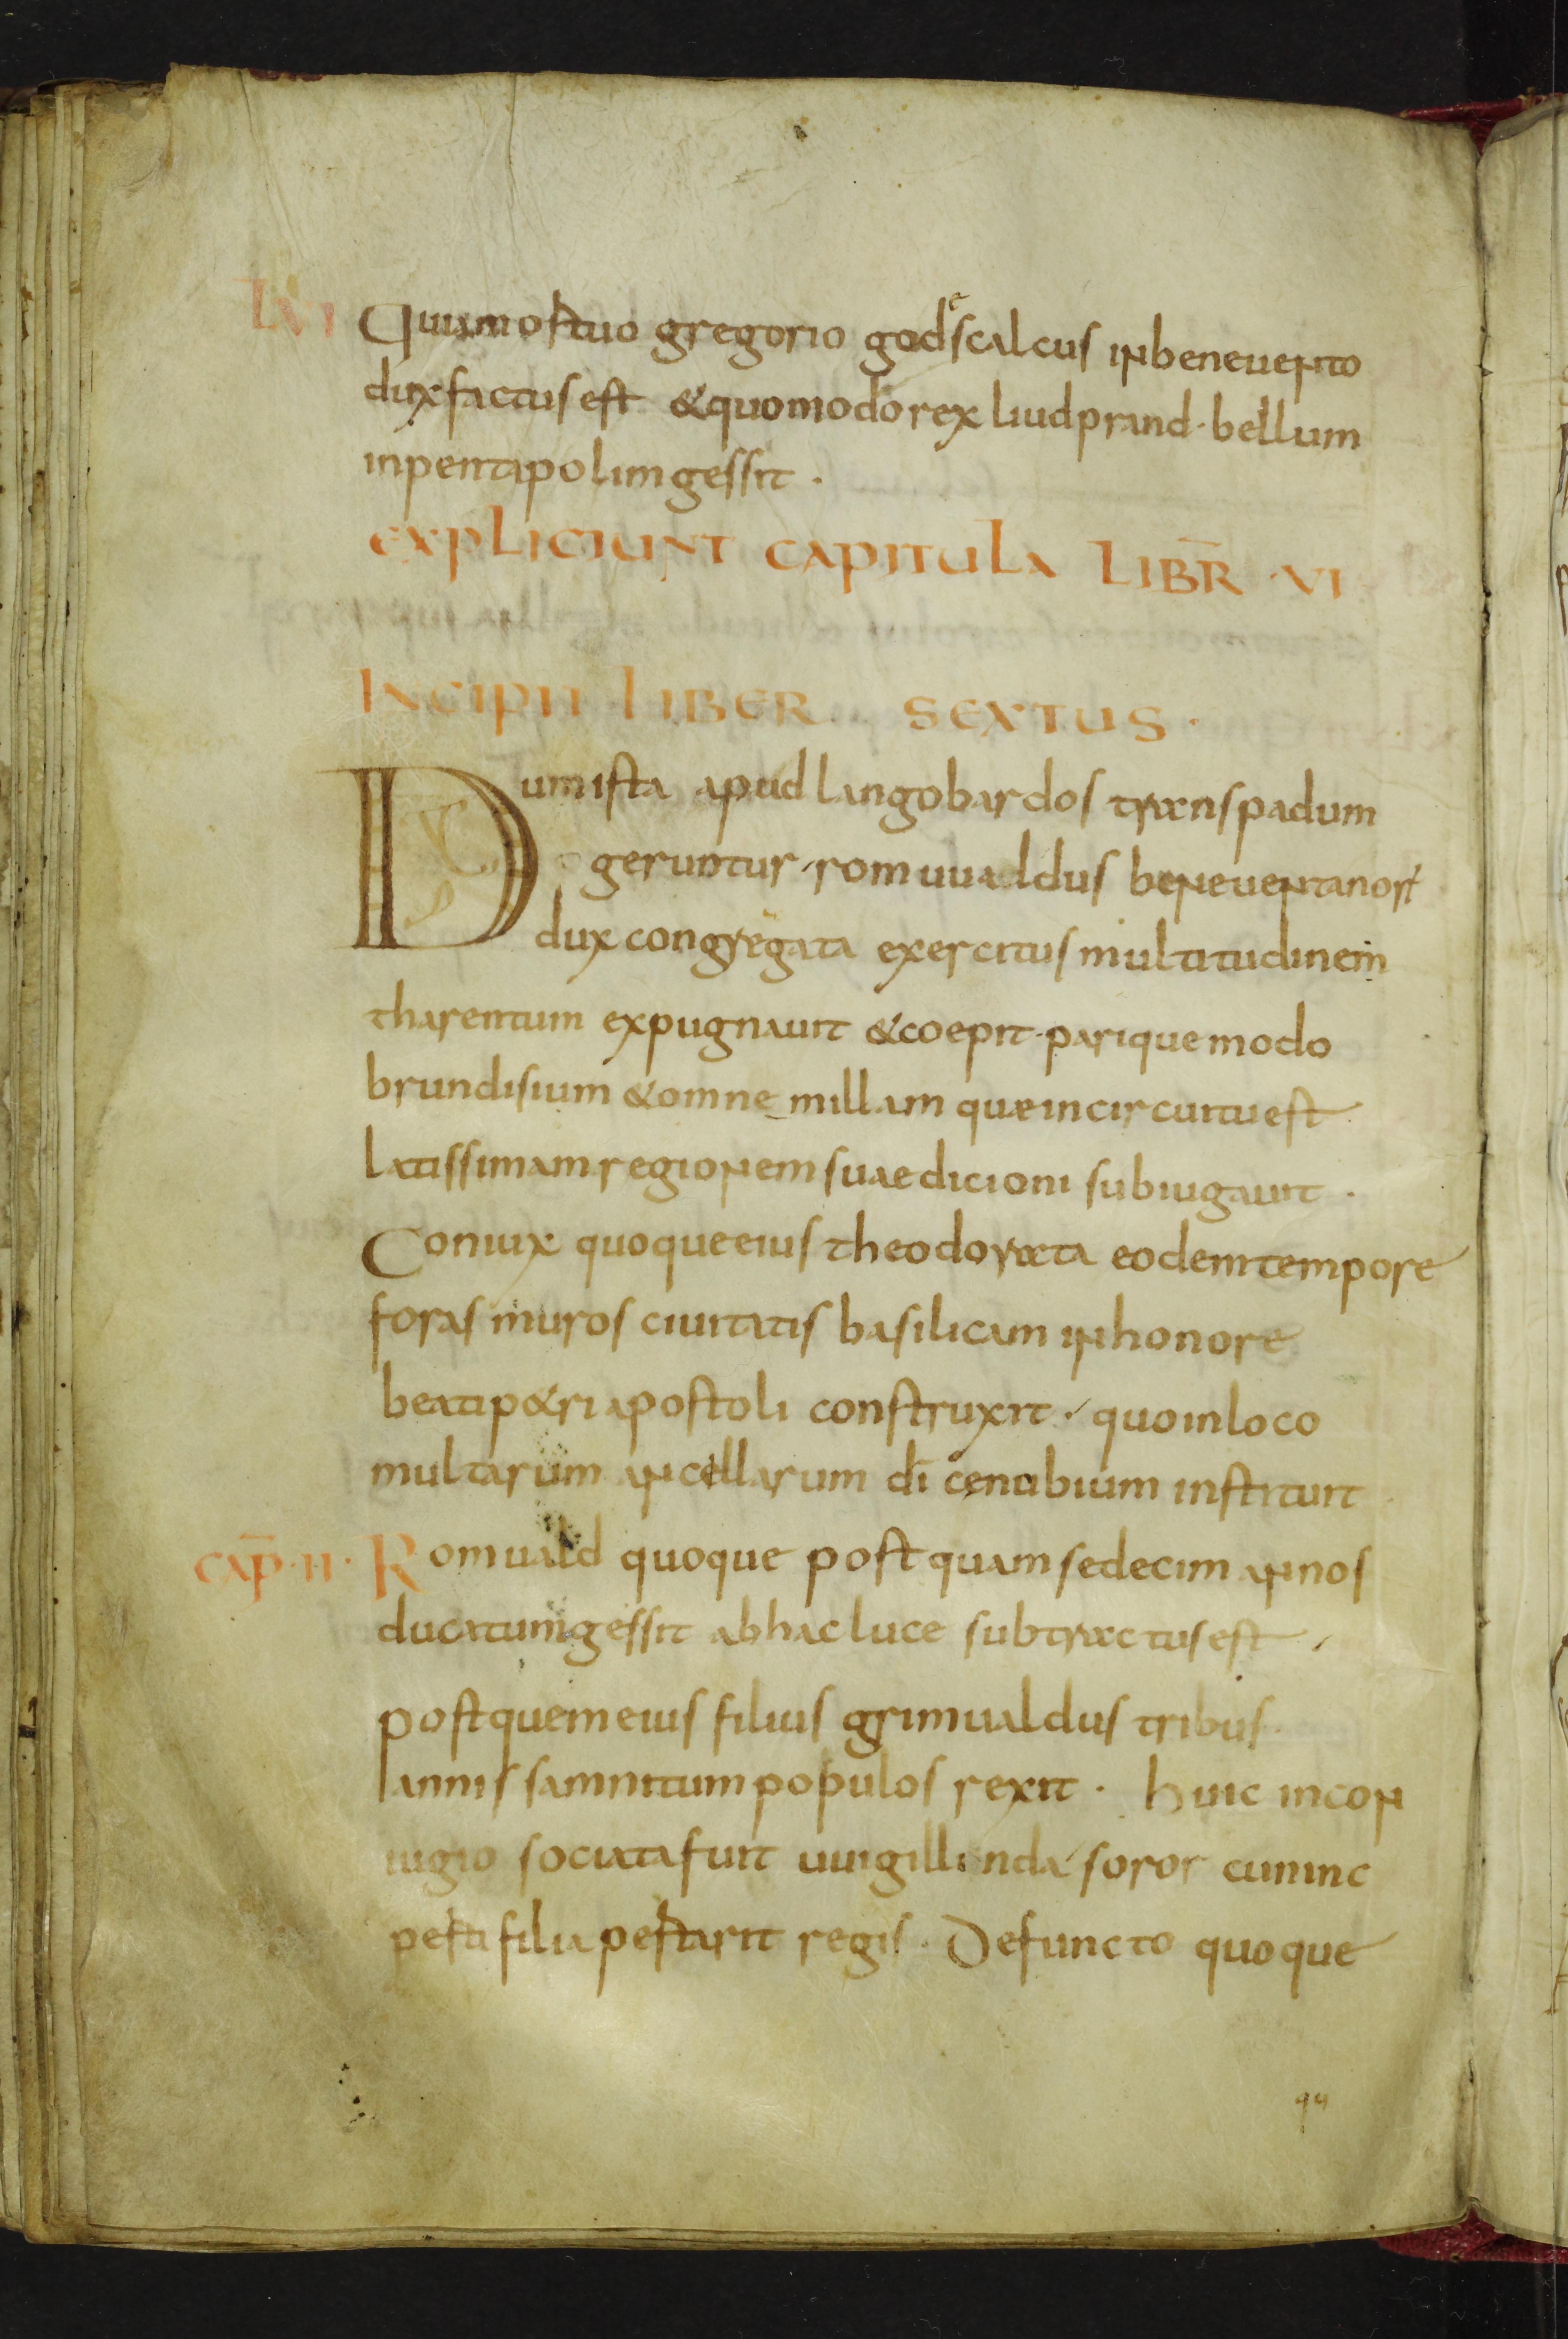 LVI Quia mortuo gregorio godescalcus in beneuento
dux factus est & quomodo rex liudprand · bellum
in pentapolim gessit ·
EXPLICIUNT CAPITULA LIBR̄ · VI
INCIPIT LIBER SEXTUS ·
Dum ista apud langobardos trans padum
geruntur · romuualdus beneuentanorū
dux congregata exercitus multitudinem
tharentum expugnauit & coepit · parique modo
brundisium & omnem illam quae in circuitu est
latissimam regionem suae dicioni subiugauit ·
Coniux quoque eius theodorata eodem tempore
foras muros ciuitatis basilicam in honore
beati p&ri apostoli construxit · quo in loco
multarum ancellarum dī cenobium instituit
CAP̄ · II · Romuald quoque postquam sedecim annos
ducatum gessit ab hac luce subtractus est
post quem eius filius grimualdus tribus
annis samnitum populos rexit · huic in con
iugio sociata fuit uuigillinda soror cuninc
perti filia pertarit regis · Defuncto quoque